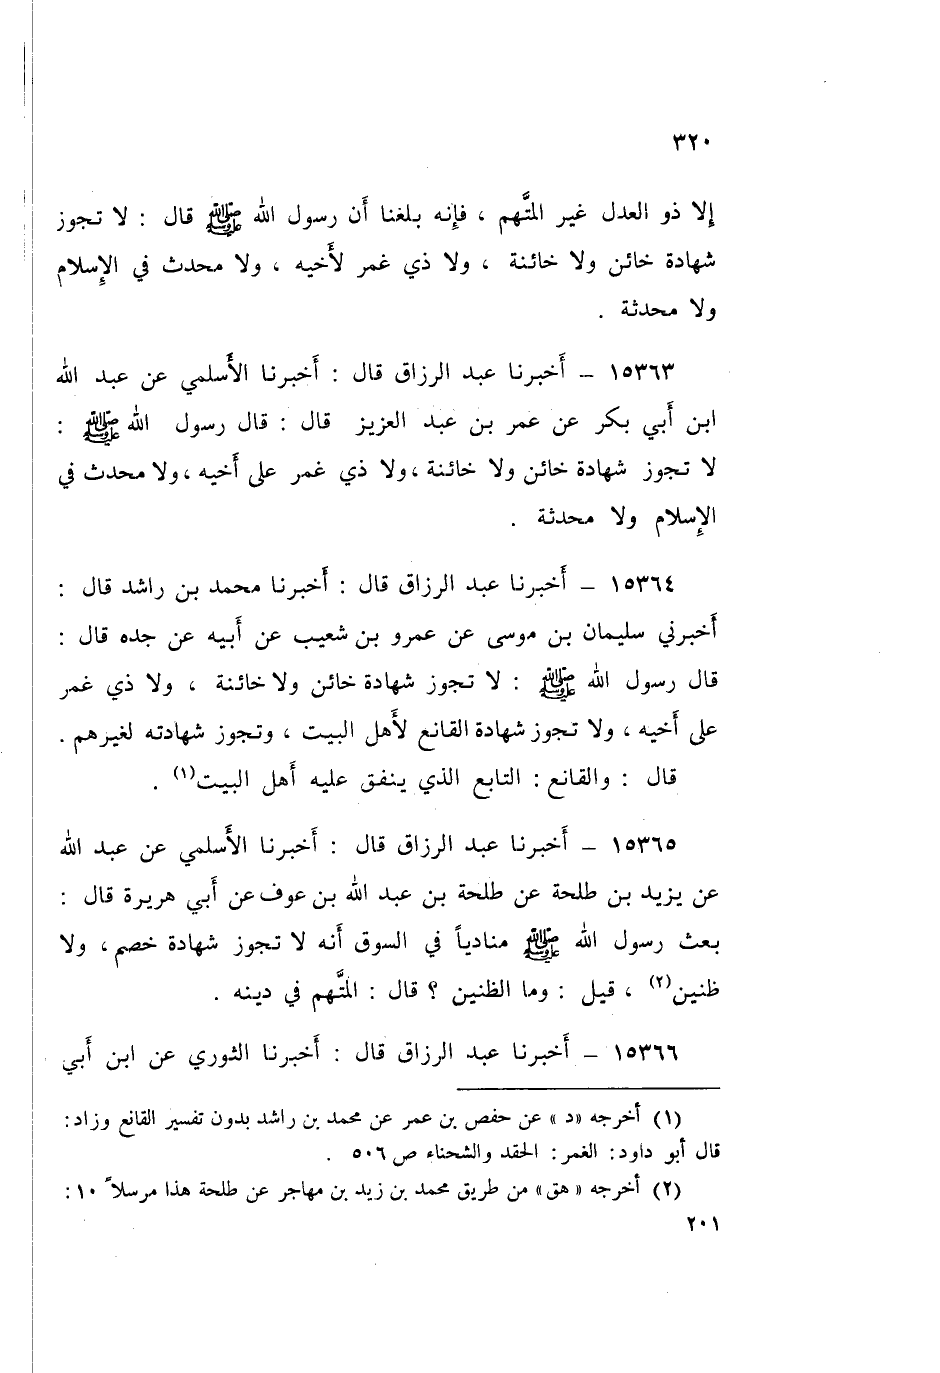 ٣٢٠
إلا ذو العدل غير المتَّهم ، فإنه بلغنا أن رسول الله ﷺ قال : لا تجوز
شهادة خائن ولا خائنة ، ولا ذي غمر لأَخيه ، ولا محدث في الإسلام
ولا محدثة .
١٥٣٦٣ – أَخبرنا عبد الرزاق قال : أَخبرنا الأَسلمي عن عبد الله
ابن أَبي بكر عن عمر بن عبد العزيز قال : قال رسول الله ﷺ :
لا تجوز شهادة خائن ولا خائنة ، ولا ذي غمر على أَخيه ، ولا محدث في
الإِسلام ولا محدثة .
١٥٣٦٤ – أَخبرنا عبد الرزاق قال : أَخبرنا محمد بن راشد قال :
أَخبرني سليمان بن موسى عن عمرو بن شعيب عن أَبيه عن جده قال :
قال رسول الله ﷺ : لا تجوز شهادة خائن ولا خائنة ، ولا ذي غمر
على أَخيه ، ولا تجوز شهادة القانع لأَهل البيت ، وتجوز شهادته لغيرهم .
قال : والقانع : التابع الذي ينفق عليه أَهل البيت(١) .
١٥٣٦٥ – أَخبرنا عبد الرزاق قال : أَخبرنا الأَسلمي عن عبد الله
عن يزيد بن طلحة عن طلحة بن عبد الله بن عوف عن أَبي هريرة قال :
بعث رسول الله ﷺ منادياً في السوق أَنه لا تجوز شهادة خصم ، ولا
ظنين(٢) ، قيل : وما الظنين ؟ قال : المتَّهم في دينه .
١٥٣٦٦ – أَخبرنا عبد الرزاق قال : أَخبرنا الثوري عن ابن أَبي
(١) أخرجه «د» عن حفص بن عمر عن محمد بن راشد بدون تفسير القانع وزاد :
قال أبو داود : الغمر : الحقد والشحناء ص ٥٠٦ .
(٢) أخرجه «هق» من طريق محمد بن زيد بن مهاجر عن طلحة هذا مرسلاً ١٠ :
٢٠١